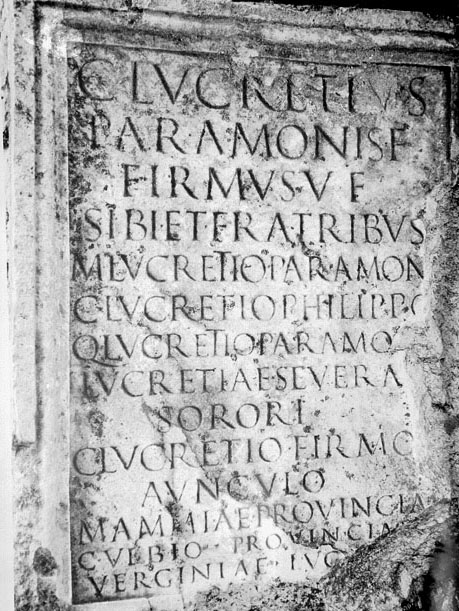 C LVCRETIVS
PARAMONIS F
FIRMVS V F
SIBI ET FRATRIBVS
M LVCRETIO PARAMON
C LVCRETIO PHILIPPO
Q LVCRETIO PARAMO
LVCRETIAE SEVERA
SORORI
C LVCRETIO FIRMO
AVNCVLO
MAMMIAE PROVINCIA
PROVINCIA
VERGINIAE LVC